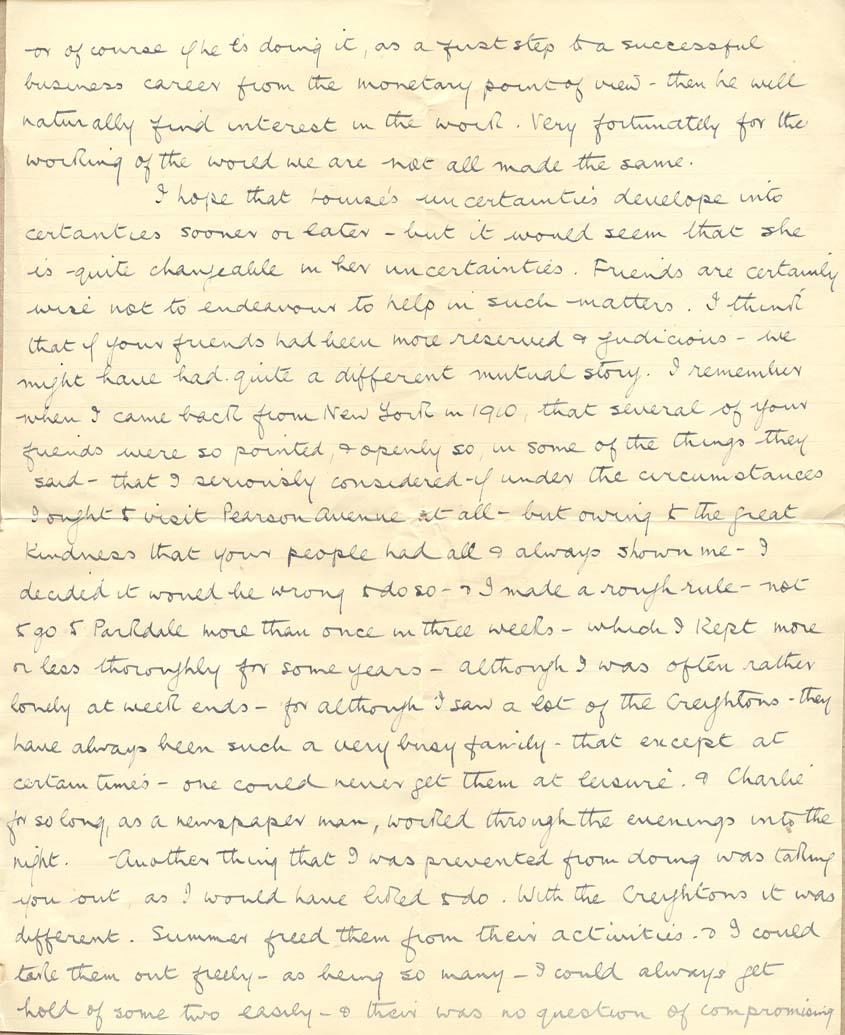 or of course if he is doing it, as a first step to a successful
business career from the monetary point of view - then he will
naturally find interest in the work. Very fortunately for the
working of the world we are not all made the same.
I hope that Louise's uncertainties develope into
certanties sooner or later - but it would seem that she
is quite changeable in her uncertainties. Friends are certainly
wise not to endeavour to help in such matters. I think
that if your friends had been more reserved & judicious - we
might have had quite a different mutual story. I remember
when I came back from New York in 1910, that several of your
friends were so pointed, & openly so, in some of the things they
said - that I seriously considered - if under the circumstances
I ought to visit Pearson Avenue at all - but owing to the great
kindness that your people had all & always shown me - I
decided it would be wrong to do so - & I made a rough rule - not
to go to Parkdale more than once in three weeks - which I kept more
or less thoroughly for some years - although I was often rather
lonely at week ends - for although I saw a lot of the Creightons - they
have always been such a very busy family - that except at
certain times - one could never get them at leisure. & Charlie
for so long, as a newspaper man, worked through the evenings into the
night. Another thing that I was prevented from doing was taking
you out, as I would have liked to do. With the Creightons it was
different. Summer freed them from their activities. & I could
take them out freely - as being so many - I could always get
hold of some two easily - & their was no question of compromising